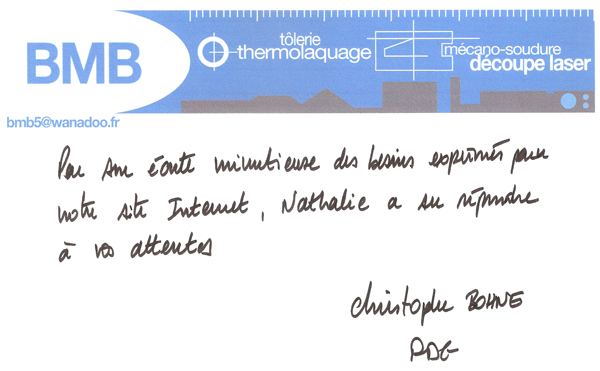 BMB
tôlerie
thermolaquage
mécano-soudure
découpe laser
bmb5@wanadoo.fr
Par son écoute minutieuse des besoins exprimés pour
notre site Internet, Nathalie a su répondre
à vos attentes
Christophe BOHNE
PDG